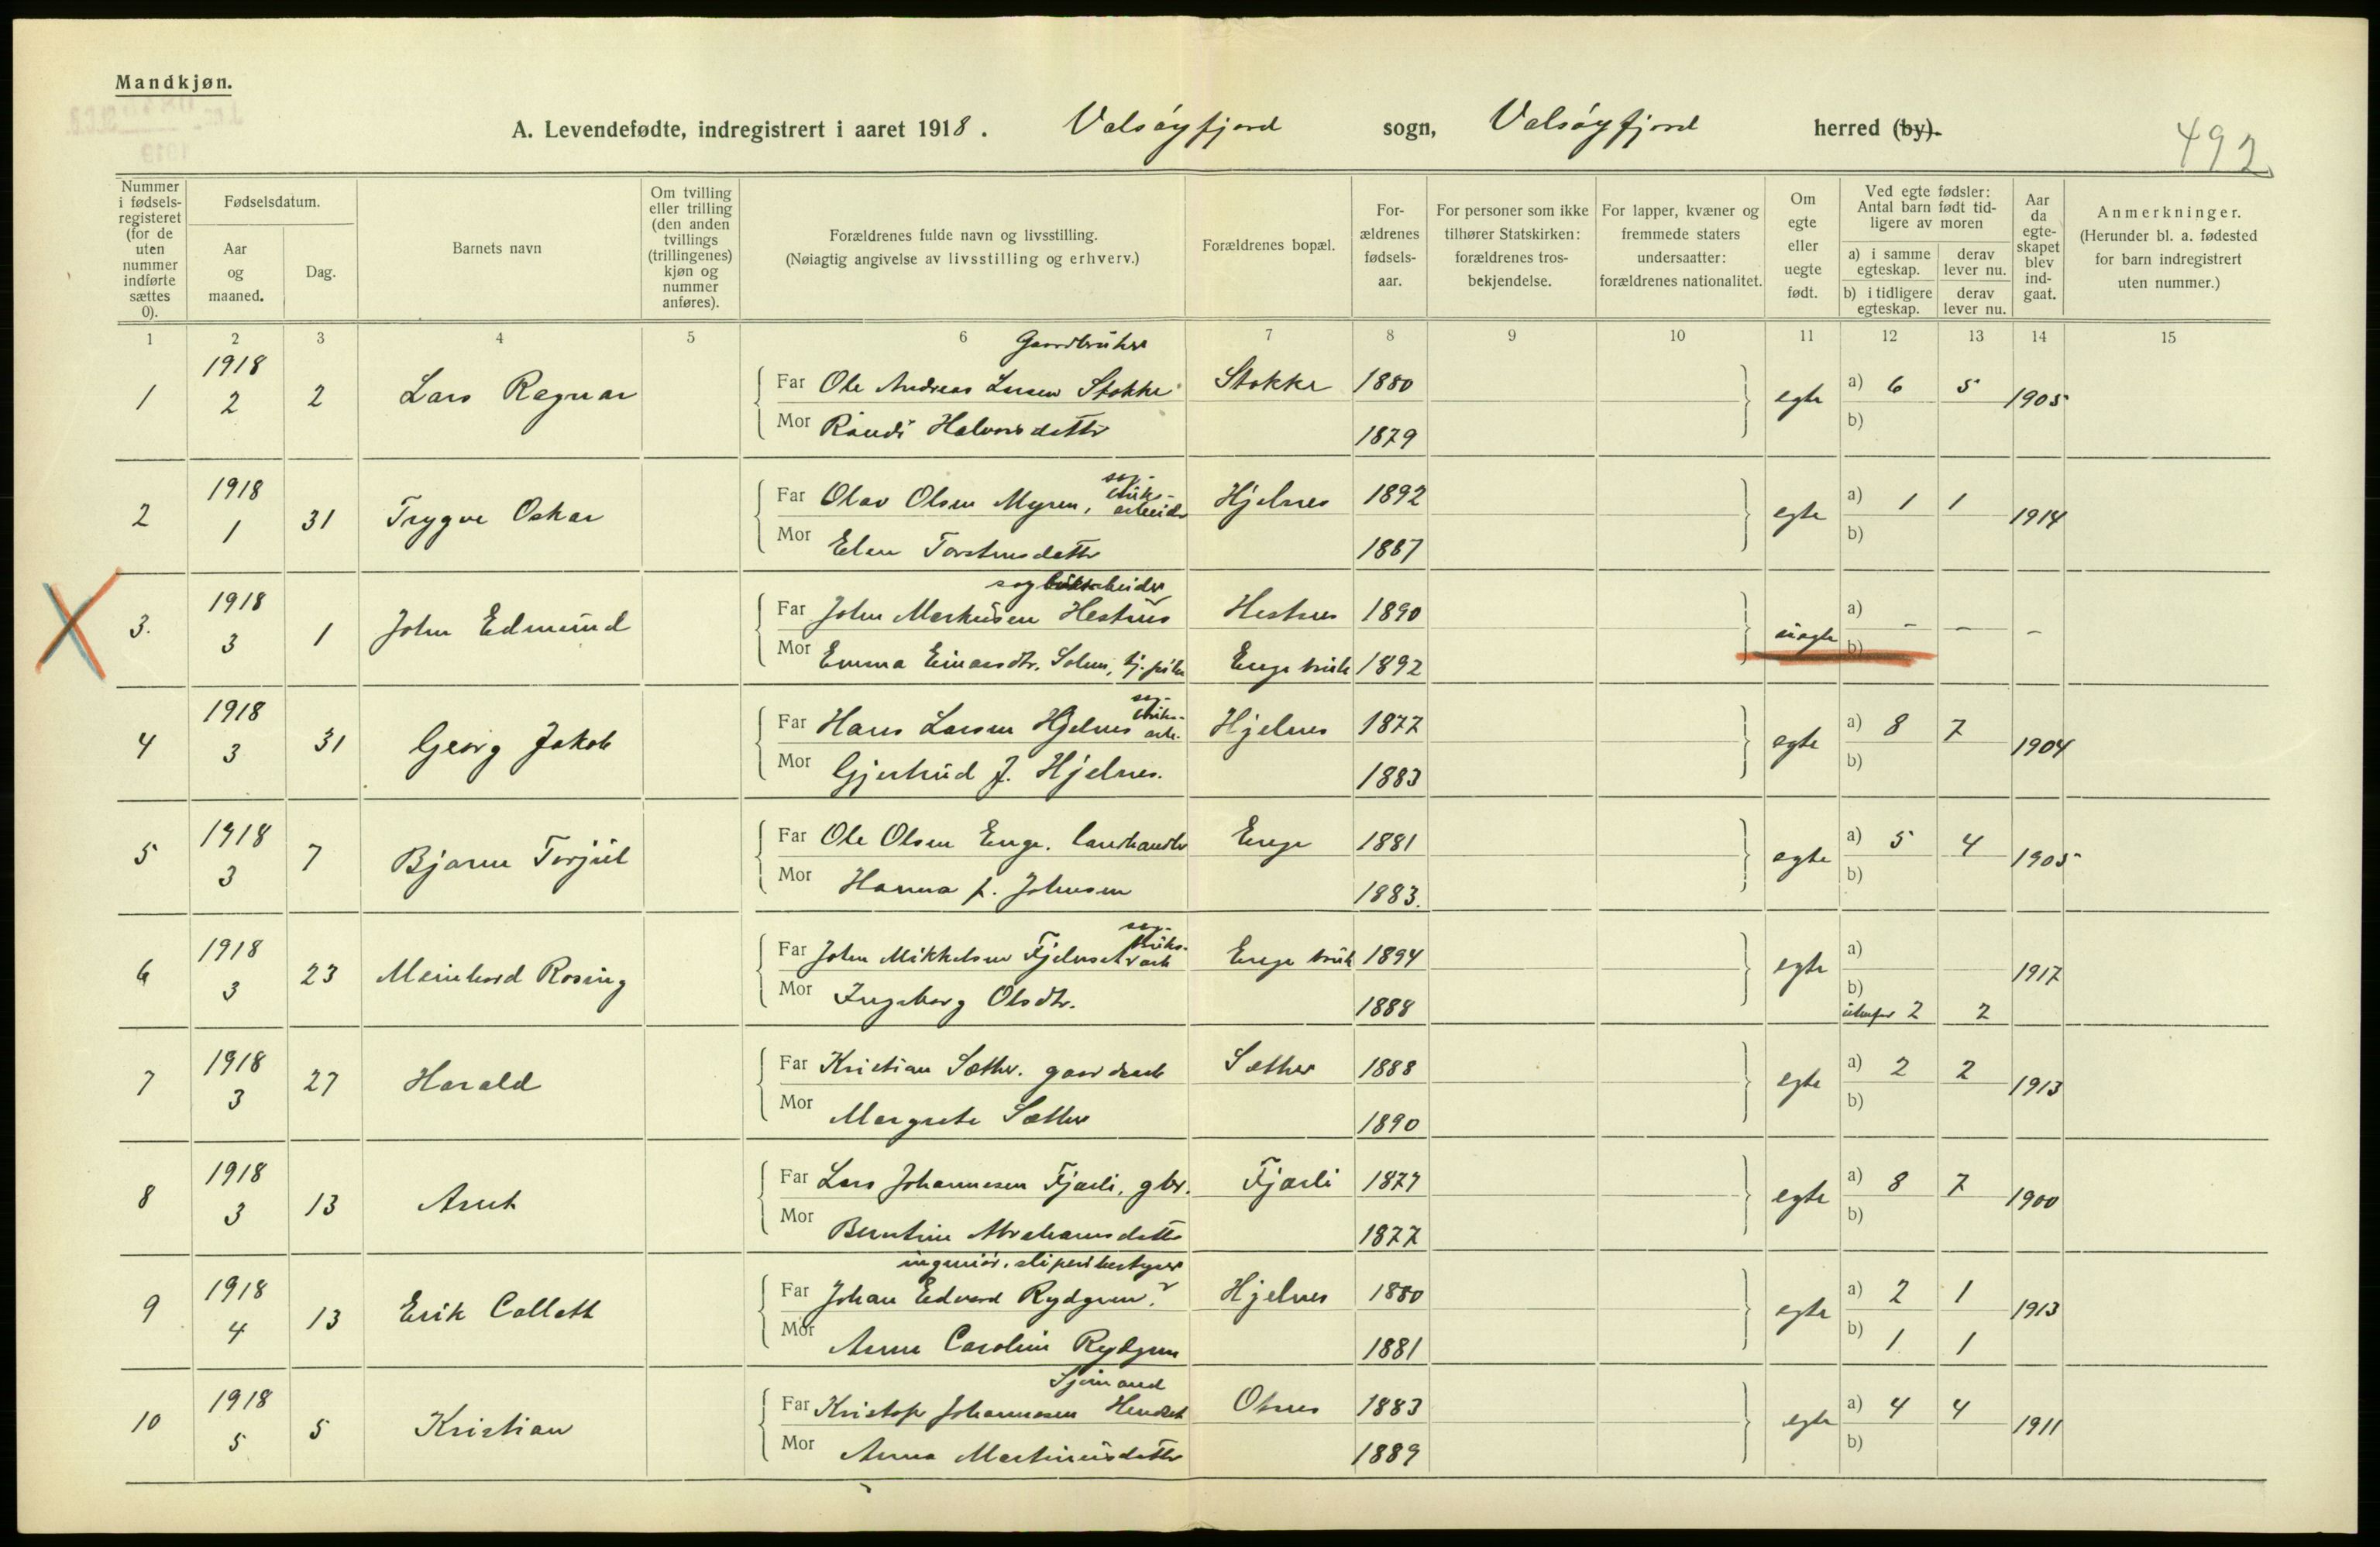 Mandkjøn.
A. Levendefødte, indregistrert i aaret 1918. Valsøyfjord sogn, Valsøyfjord herred (by).
492
Nummer i fødselsregisteret (for de uten nummer indførte sættes 0).
Fødselsdatum.
Aar og maaned.
Dag.
Barnets navn
Om tvilling eller trilling (den anden tvillings (trillingenes) kjøn og nummer anføres).
Forældrenes fulde navn og livsstilling.
(Nøiagtig angivelse av livsstilling og erhverv.)
Forældrenes bopæl.
Forældrenes fødselsaar.
For personer som ikke tilhører Statskirken: forældrenes trosbekjendelse.
For lapper, kvæner og fremmede staters undersaatter: forældrenes nationalitet.
Om egte eller uegte født.
Ved egte fødsler: Antal barn født tidligere av moren
a) i samme egteskap. derav lever nu.
b) i tidligere egteskap. derav lever nu.
Aar da egteskapet blev indgaat.
Anmerkninger.
(Herunder bl. a. fødested for barn indregistrert uten nummer.)
1 2 3 4 5 6 7 8 9 10 11 12 13 14 15
Gaardbruker
1 1918 2 2 Lars Ragnar Far Ole Andreas Larsen Stokke Stokke 1880 egte a) 6 5 1905
Mor Randi Halvorsdatter 1879 b)
sag-
bruks-
2 1918 1 31 Trygve Oskar Far Olav Olsen Myren, arbeider Hjelnes 1892 egte a) 1 1 1914
Mor Elen Torstensdatter 1887 b)
sagbruksarbeider
3. 1918 3 1 John Edmund Far John Markusen Hestnes Hestnes 1890 uegte a) – – –
Mor Emma Einarsdtr. Solem, tj. pike Enge bruk 1892 b)
sag-
bruks-
4 1918 3 31 Georg Jakob Far Hans Larsen Hjelnes arb. Hjelnes 1877 egte a) 8 7 1904
Mor Gjertrud J. Hjelnes. 1883 b)
5 1918 3 7 Bjarne Torjul Far Ole Olsen Enge. landhandler Enge 1881 egte a) 5 4 1905
Mor Hanna f. Johnsen 1883. b)
sag-
bruks-
6 1918 3 23 Meinhard Rosing Far John Mikkelsen arb Enge bruk 1894 egte a) 1917
Mor Ingeborg Olsdtr. 1888 b)
utenfor 2 2
7 1918 3 27 Harald Far Kristian Sæther. Sæther 1888 egte a) 2 2 1913
Mor Margrete Sæther 1890 b)
8 1918 3 13 Arnt Far Lars Johannesen Fjærli, gbr. Fjærli 1877 egte a) 8 7 1900
Mor Berntine Abrahamsdatter 1877 b)
ingeniør, sliperibestyrer
9 1918 4 13 Erik Collett Far Johan Edvard Rydgren. Hjelnes 1880 egte a) 2 1 1913
Mor Anne Caroline Rydgren 1881 b) 1 1
Sjømand
10 1918 5 5 Kristian Far Kristofer Johannesen Hendset Otnes 1883 egte a) 4 4 1911
Mor Anna Martinusdatter 1889 b)